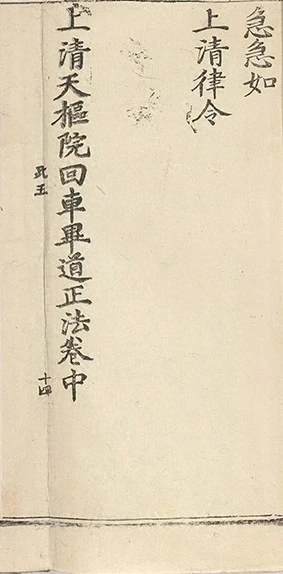 急急如
上清律令
上清天樞院回車畢道正法卷中
十四